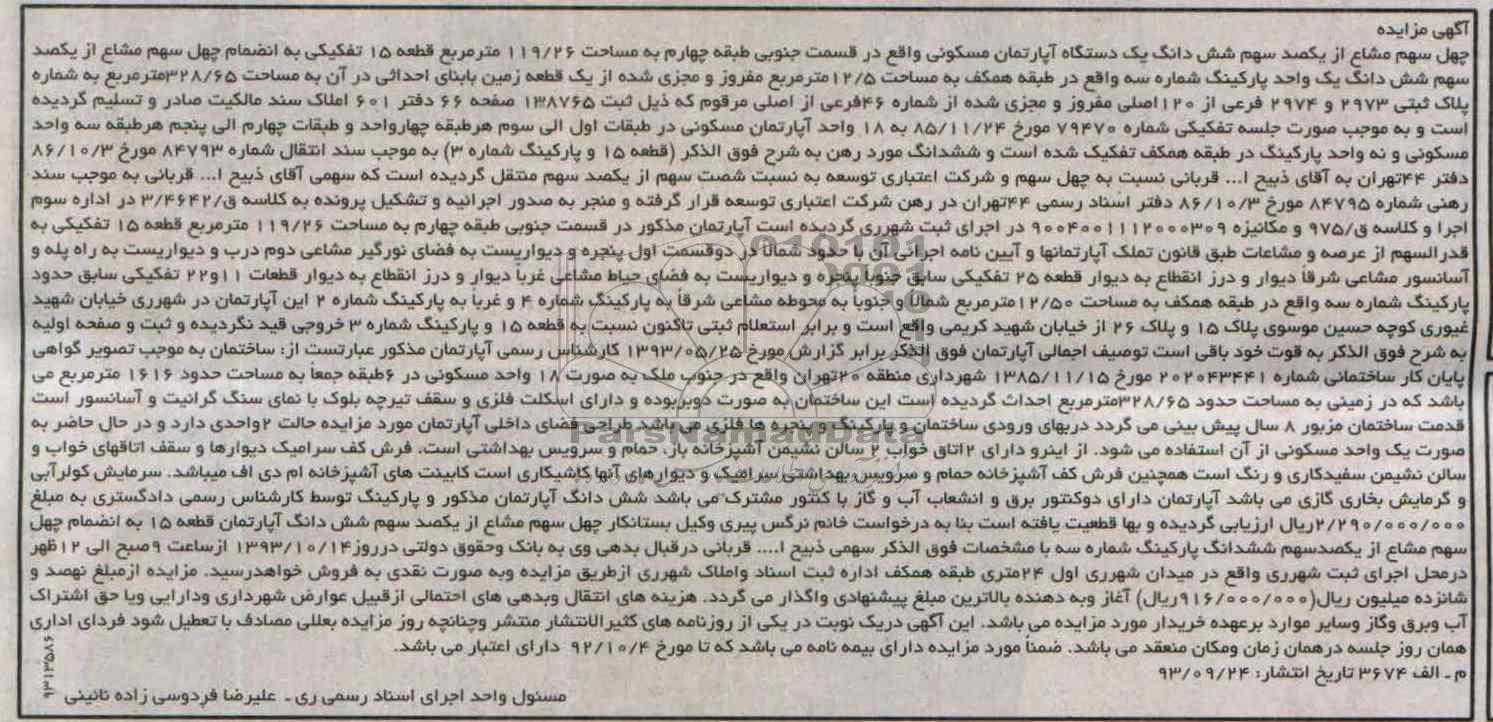 آگهی مزایده
چهل سهم مشاع از یکصد سهم شش دانگ یک دستگاه آپارتمان مسکونی واقع در قسمت جنوبی طبقه چهارم به مساحت ۱۱۹/۲۶ مترمربع قطعه ۱۵ تفکیکی به انضمام چهل سهم مشاع از یکصد
سهم شش دانگ یک واحد پارکینگ شماره سه واقع در طبقه همکف به مساحت ۱۲/۵مترمربع مفروز و مجزی شده از یک قطعه زمین بابنای احداثی در آن به مساحت ۳۲۸/۶۵مترمربع به شماره
پلاک ثبتی ۲۹۷۳ و ۲۹۷۴ فرعی از ۱۲۰اصلی مفروز و مجزی شده از شماره ۴۶فرعی از اصلی مرقوم که ذیل ثبت ۱۳۸۷۶۵ صفحه ۶۶ دفتر ۶۰۱ املاک سند مالکیت صادر و تسلیم گردیده
است و به موجب صورت جلسه تفکیکی شماره ۷۹۴۷۰ مورخ ۸۵/۱۱/۲۴ به ۱۸ واحد آپارتمان مسکونی در طبقات اول الی سوم هرطبقه چهارواحد و طبقات چهارم الی پنجم هرطبقه سه واحد
مسکونی و نه واحد پارکینگ در طبقه همکف تفکیک شده است و ششدانگ مورد رهن به شرح فوق الذکر (قطعه ۱۵ و پارکینگ شماره ۳) به موجب سند انتقال شماره ۸۴۷۹۳ مورخ ۸۶/۱۰/۳
دفتر ۴۴تهران به آقای ذبیح ا... قربانی نسبت به چهل سهم و شرکت اعتباری توسعه به نسبت شصت سهم از یکصد سهم منتقل گردیده است که سهمی آقای ذبیح ا... قربانی به موجب سند
رهنی شماره ۸۴۷۹۵ مورخ ۸۶/۱۰/۳ دفتر اسناد رسمی ۴۴تهران در رهن شرکت اعتباری توسعه قرار گرفته و منجر به صدور اجرائیه و تشکیل پرونده به کلاسه ق/۳/۴۶۴۲ در اداره سوم
اجرا و کلاسه ق/۹۷۵ و مکانیزه ۹۰۰۴۰۰۱۱۱۲۰۰۰۳۰۹ در اجرای ثبت شهرری گردیده است آپارتمان مذکور در قسمت جنوبی طبقه چهارم به مساحت ۱۱۹/۲۶ مترمربع قطعه ۱۵ تفکیکی به
قدرالسهم از عرصه و مشاعات طبق قانون تملک آپارتمانها و آیین نامه اجرائی آن با حدود شمالاً در دوقسمت اول پنجره و دیواریست به فضای نورگیر مشاعی دوم درب و دیواریست به راه پله و
آسانسور مشاعی شرقاً دیوار و درز انقطاع به دیوار قطعه ۲۵ تفکیکی سابق جنوباً پنجره و دیواریست به فضای حیاط مشاعی غرباً دیوار و درز انقطاع به دیوار قطعات ۱۱و۲۲ تفکیکی سابق حدود
پارکینگ شماره سه واقع در طبقه همکف به مساحت ۱۲/۵۰مترمربع شمالاً وجنوباً به محوطه مشاعی شرقاً به پارکینگ شماره ۴ و غرباً به پارکینگ شماره ۲ این آپارتمان در شهرری خیابان شهید
غیوری کوچه حسین موسوی پلاک ۱۵ و پلاک ۲۶ از خیابان شهید کریمی واقع است و برابر استعلام ثبتی تاکنون نسبت به قطعه ۱۵ و پارکینگ شماره ۳ خروجی قید نگردیده و ثبت و صفحه اولیه
به شرح فوق الذکر به قوت خود باقی است توصیف اجمالی آپارتمان فوق الذکر برابر گزارش مورخ ۱۳۹۳/۰۵/۲۵ کارشناس رسمی آپارتمان مذکور عبارتست از: ساختمان به موجب تصویر گواهی
پایان کار ساختمانی شماره ۲۰۲۰۴۳۴۴۱ مورخ ۱۳۸۵/۱۱/۱۵ شهرداری منطقه ۲۰تهران واقع در جنوب ملک به صورت ۱۸ واحد مسکونی در ۶طبقه جمعاً به مساحت حدود ۱۶۱۶ مترمربع می
باشد که در زمینی به مساحت حدود ۳۲۸/۶۵مترمربع احداث گردیده است این ساختمان به صورت دوبربوده و دارای اسکلت فلزی و سقف تیرچه بلوک با نمای سنگ گرانیت و آسانسور است
قدمت ساختمان مزبور ۸ سال پیش بینی می گردد دربهای ورودی ساختمان و پارکینگ و پنجره ها فلزی می باشد طراحی فضای داخلی آپارتمان مورد مزایده حالت ۲واحدی دارد و در حال حاضر به
صورت یک واحد مسکونی از آن استفاده می شود. از اینرو دارای ۲اتاق خواب ۲ سالن نشیمن آشپزخانه باز، حمام و سرویس بهداشتی است. فرش کف سرامیک دیوارها و سقف اتاقهای خواب و
سالن نشیمن سفیدکاری و رنگ است همچنین فرش کف آشپزخانه حمام و سرویس بهداشتی سرامیک و دیوارهای آنها کاشیکاری است کابینت های آشپزخانه ام دی اف میباشد. سرمایش کولرآبی
و گرمایش بخاری گازی می باشد آپارتمان دارای دوکنتور برق و انشعاب آب و گاز با کنتور مشترک می باشد شش دانگ آپارتمان مذکور و پارکینگ توسط کارشناس رسمی دادگستری به مبلغ
۲/۲۹۰/۰۰۰/۰۰۰ریال ارزیابی گردیده و بها قطعیت یافته است بنا به درخواست خانم نرگس پیری وکیل بستانکار چهل سهم مشاع از یکصد سهم شش دانگ آپارتمان قطعه ۱۵ به انضمام چهل
سهم مشاع از یکصدسهم ششدانگ پارکینگ شماره سه با مشخصات فوق الذکر سهمی ذبیح ا.... قربانی درقبال بدهی وی به بانک وحقوق دولتی درروز۱۳۹۳/۱۰/۱۴ ازساعت ۹صبح الی ۱۲ظهر
درمحل اجرای ثبت شهرری واقع در میدان شهرری اول ۲۴متری طبقه همکف اداره ثبت اسناد واملاک شهرری ازطریق مزایده وبه صورت نقدی به فروش خواهدرسید. مزایده ازمبلغ نهصد و
شانزده میلیون ریال(۹۱۶/۰۰۰/۰۰۰ریال) آغاز وبه دهنده بالاترین مبلغ پیشنهادی واگذار می گردد. هزینه های انتقال وبدهی های احتمالی ازقبیل عوارض شهرداری ودارایی ویا حق اشتراک
آب وبرق وگاز وسایر موارد برعهده خریدار مورد مزایده می باشد. این آگهی دریک نوبت در یکی از روزنامه های کثیرالانتشار منتشر وچنانچه روز مزایده بعللی مصادف با تعطیل شود فردای اداری
همان روز جلسه درهمان زمان ومکان منعقد می باشد. ضمناً مورد مزایده دارای بیمه نامه می باشد که تا مورخ ۹۲/۱۰/۴ دارای اعتبار می باشد.
م ـ الف ۳۶۷۴ تاریخ انتشار: ۹۳/۰۹/۲۴
مسئول واحد اجرای اسناد رسمی ری ـ علیرضا فردوسی زاده نائینی
۹۳۱۳۵۸۶
ParsNamadData